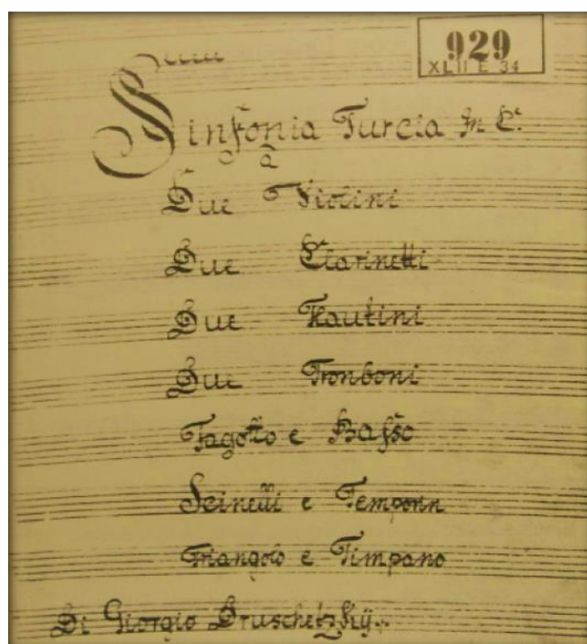 929
XLII E 34
Sinfonia Turcia In C.
a
Due Violini
Due Clarinetti
Due Flautini
Due Tromboni
Fagotto e Baſso
Scinelli e Temponn
Triangolo e Timpano
Di Giorgio Druschetzkÿ